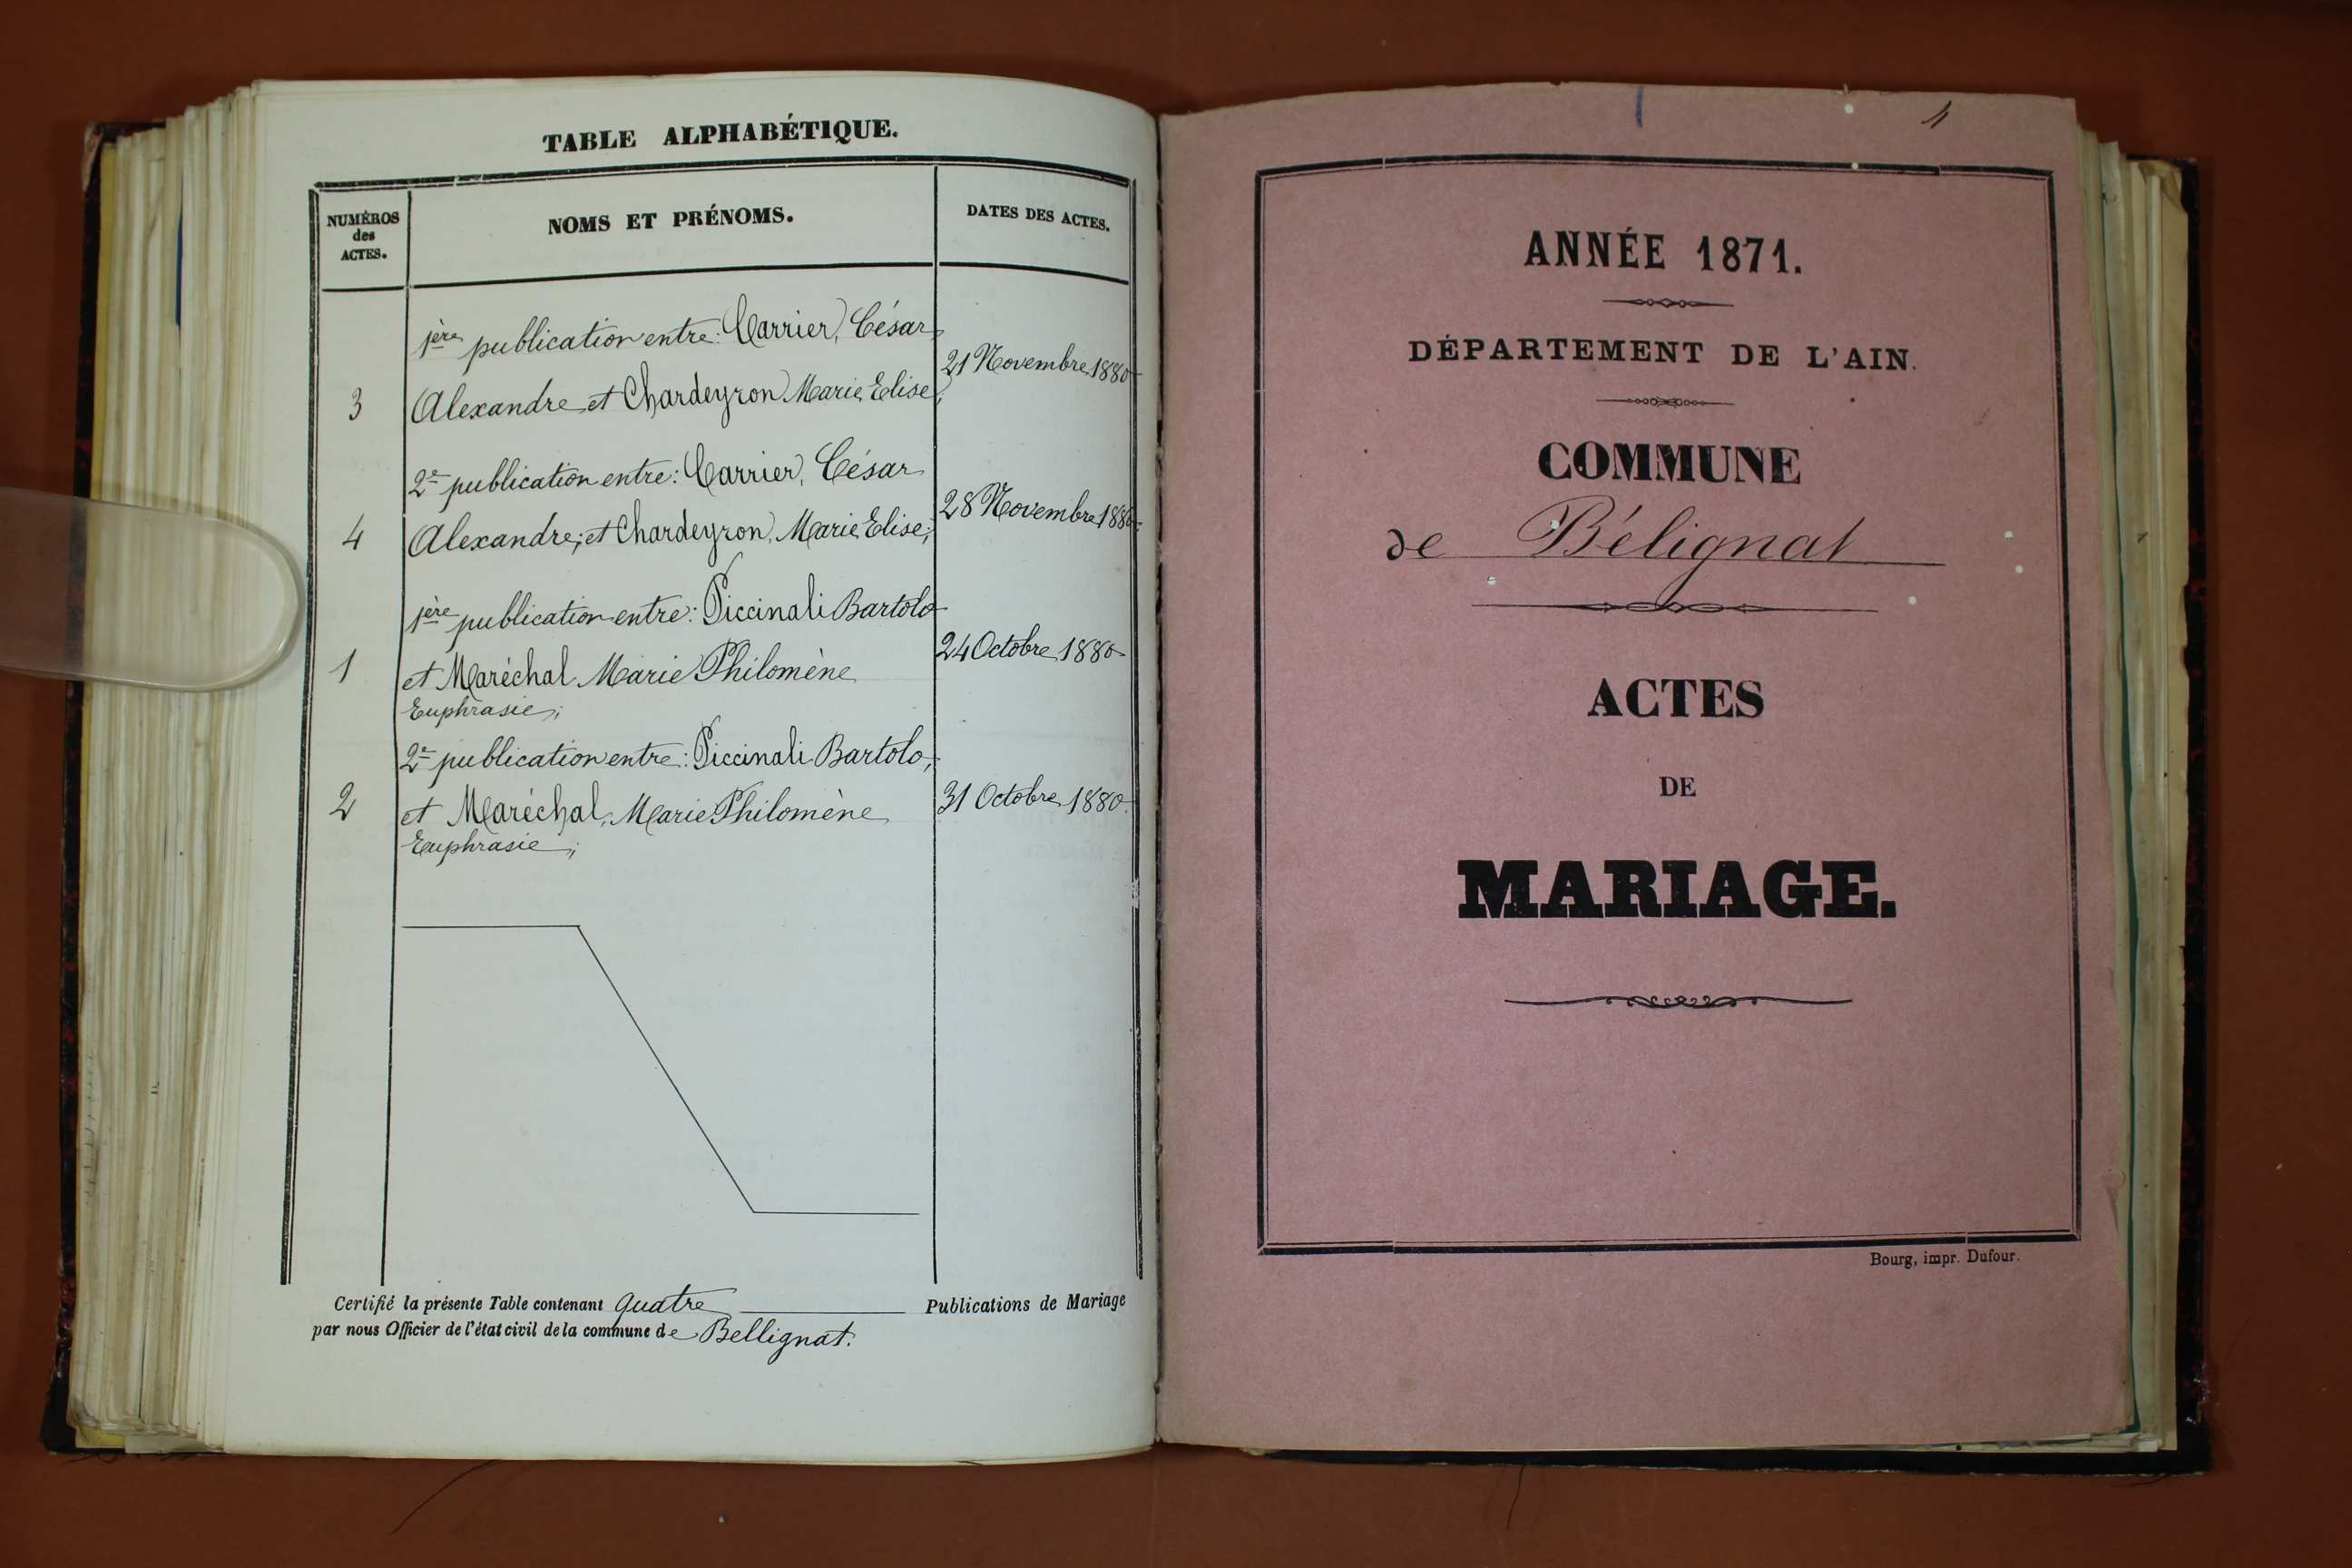 TABLE ALPHABÉTIQUE.
NUMÉROS
des
ACTES.
NOMS ET PRÉNOMS.
DATES DES ACTES.
1ère publication entre: Carrier, César
3 Alexandre, et Chardeyron Marie Elise; 21 Novembre 1880
2e publication entre: Carrier, César
4 Alexandre; et Chardeyron, Marie Elise; 28 Novembre 1880
1ère publication entre: Piccinali Bartolo
1 et Maréchal Marie Philomène 24 Octobre 1880
Euphrasie;
2e publication entre: Piccinali Bartolo,
2 et Maréchal, Marie Philomène 31 Octobre 1880
Euphrasie;
Certifié la présente Table contenant quatre Publications de Mariage
par nous Officier de l'état civil de la commune de Bellignat.
1
ANNÉE 1871.
DÉPARTEMENT DE L'AIN.
COMMUNE
de Bélignat
ACTES
DE
MARIAGE.
Bourg, impr. Dufour.